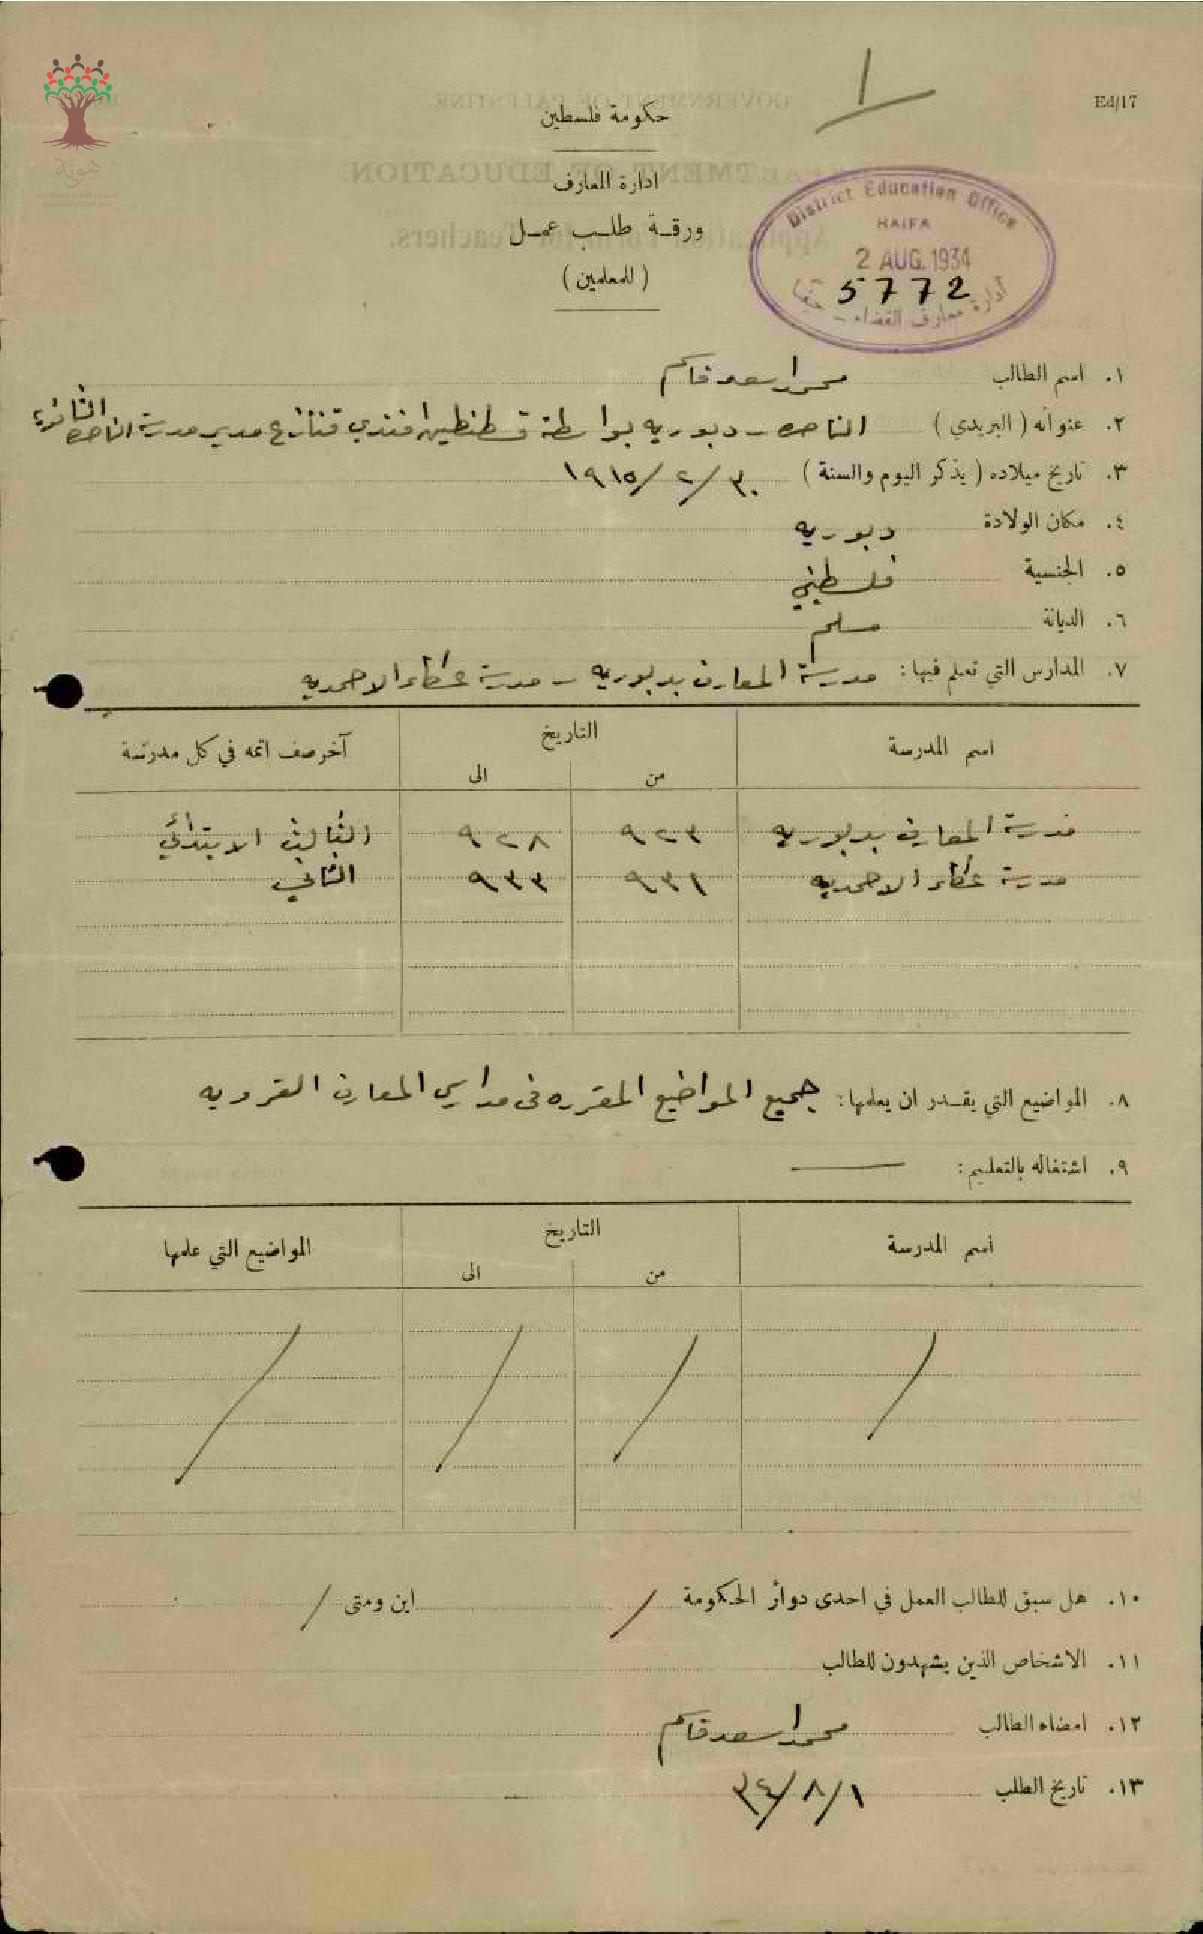 Ed/17
حكومة فلسطين
ادارة المعارف
ورقة طلب عمل
(للمعلمين)
District Education Office
HAIFA
2 AUG. 1934
5772
ادارة معارف القضاء - حيفا
هوية
١. اسم الطالب محمد اسعد قاسم
٢. عنوانه (البريدي) الناصره - دبوريه بواسطة قسطنطين افندي قنازع مدير مدرسة الناصره الثانويه
٣. تاريخ ميلاده (يذكر اليوم والسنة) ٣٠/٢/١٩١٥
٤. مكان الولادة دبوريه
٥. الجنسية فلسطيني
٦. الديانة مسلم
٧. المدارس التي تعلم فيها: مدرسة المعارف بدبوريه - مدرسة عكاء الاحمديه
اسم المدرسة التاريخ آخر صف اتمه في كل مدرسة
من الى
مدرسة المعارف بدبوريه ٩٢٣ ٩٢٨ الثالث الابتدائي
مدرسة عكاء الاحمديه ٩٣١ ٩٣٣ الثاني
٨. المواضيع التي يقدر ان يعلمها: جميع المواضيع المقرره في مدارس المعارف القرويه
٩. اشتغاله بالتعليم: —
اسم المدرسة التاريخ المواضيع التي علمها
من الى
١٠. هل سبق للطالب العمل في احدى دوائر الحكومة / اين ومتى /
١١. الاشخاص الذين يشهدون للطالب
١٢. امضاء الطالب محمد اسعد قاسم
١٣. تاريخ الطلب ١/٨/٣٤